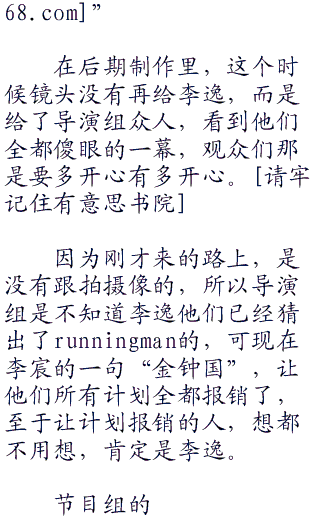 68.com]”
在后期制作里，这个时
候镜头没有再给李逸，而是
给了导演组众人，看到他们
全都傻眼的一幕，观众们那
是要多开心有多开心。[请牢
记住有意思书院]
因为刚才来的路上，是
没有跟拍摄像的，所以导演
组是不知道李逸他们已经猜
出了runningman的，可现在
李宸的一句“金钟国”，让
他们所有计划全都报销了，
至于让计划报销的人，想都
不用想，肯定是李逸。
节目组的